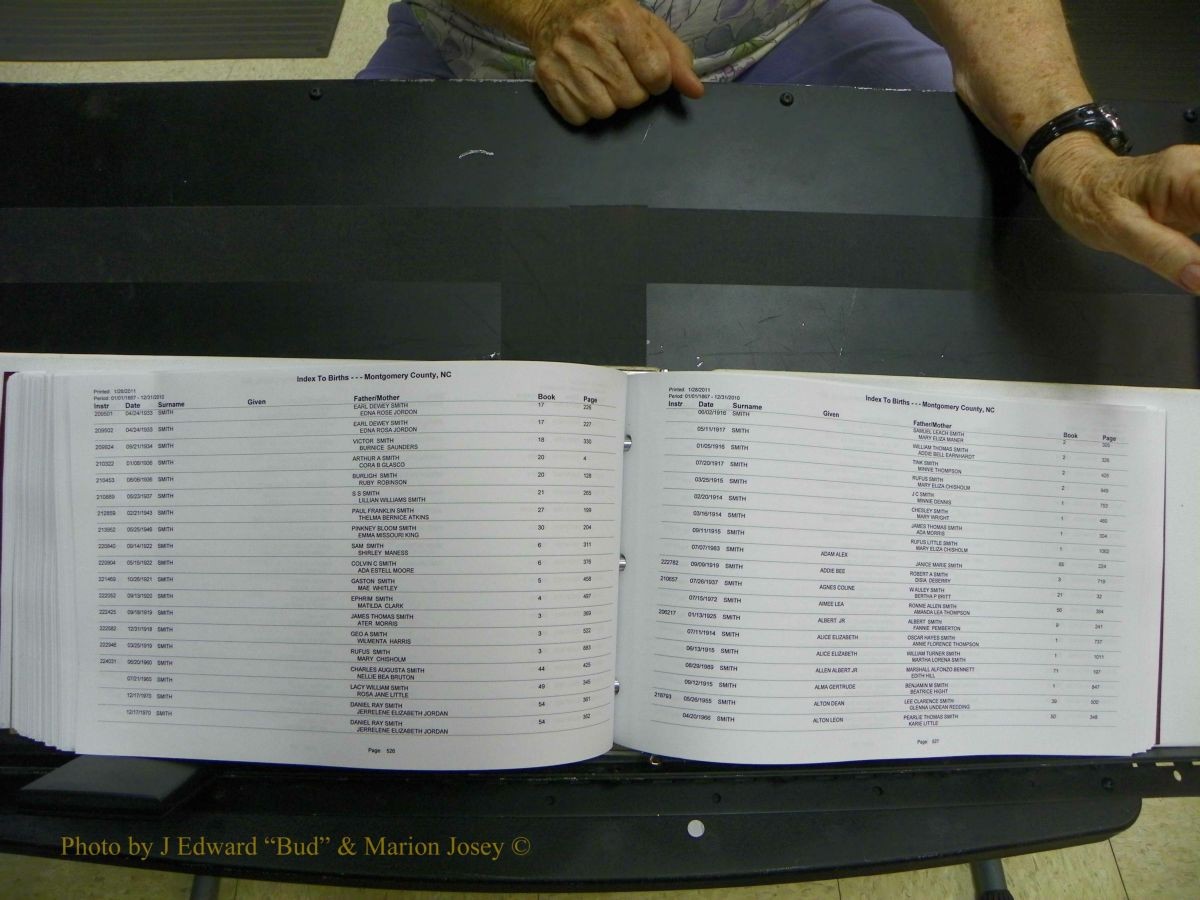 Index To Births - - - Montgomery County, NC
Printed: 1/28/2011
Period: 01/01/1867 - 12/31/2010
Instr Date Surname Given Father/Mother Book Page
209501 04/24/1933 SMITH EARL DEWEY SMITH 17 226
EDNA ROSE JORDON
209502 04/24/1933 SMITH EARL DEWEY SMITH 17 227
EDNA ROSA JORDON
209824 09/21/1934 SMITH VICTOR SMITH 18 330
BURNICE SAUNDERS
210322 01/08/1936 SMITH ARTHUR A SMITH 20 4
CORA B GLASCO
210453 SMITH BURLIGH SMITH 20 128
RUBY ROBINSON
210889 SMITH S S SMITH 21 265
LILLIAN WILLIAMS SMITH
212859 02/21/1943 SMITH PAUL FRANKLIN SMITH 27 199
THELMA BERNICE ATKINS
213952 05/25/1946 SMITH PINKNEY BLOOM SMITH 30 204
EMMA MISSOURI KING
220840 09/14/1922 SMITH SAM SMITH 6 311
SHIRLEY MANESS
220904 05/15/1922 SMITH COLVIN C SMITH 6 376
ADA ESTELL MOORE
221469 10/26/1921 SMITH GASTON SMITH 5 458
MAE WHITLEY
222052 09/13/1920 SMITH EPHRIM SMITH 4 497
MATILDA CLARK
222425 09/18/1919 SMITH JAMES THOMAS SMITH 3 369
ATER MORRIS
222582 12/31/1918 SMITH GEO A SMITH 3 522
WILMENTA HARRIS
222946 03/25/1919 SMITH RUFUS SMITH 3 883
MARY CHISHOLM
224031 06/20/1960 SMITH CHARLES AUGUSTA SMITH 44 425
NELLIE BEA BRUTON
07/21/1965 SMITH LACY WILLIAM SMITH 49 345
ROSA JANE LITTLE
12/17/1970 SMITH DANIEL RAY SMITH 54 361
JERRELENE ELIZABETH JORDAN
12/17/1970 SMITH DANIEL RAY SMITH 54 362
JERRELENE ELIZABETH JORDAN
Page 526
Printed: 1/28/2011
Period: 01/01/1867 - 12/31/2010
Index To Births - - - Montgomery County, NC
Instr Date Surname Given Father/Mother Book Page
06/02/1916 SMITH SAMUEL LEACH SMITH 2
MARY ELIZA MANER
05/11/1917 SMITH WILLIAM THOMAS SMITH 2 326
ADDIE BELL EARNHARDT
01/05/1916 SMITH TINK SMITH 2 425
MINNIE THOMPSON
07/20/1917 SMITH RUFUS SMITH 2 949
MARY ELIZA CHISHOLM
03/25/1915 SMITH J C SMITH 1 753
MINNIE DENNIS
02/20/1914 SMITH CHESLEY SMITH 1 460
MARY WRIGHT
03/16/1914 SMITH JAMES THOMAS SMITH 1 504
ADA MORRIS
09/11/1915 SMITH RUFUS LITTLE SMITH 1 1002
MARY ELIZA CHISHOLM
07/07/1983 SMITH ADAM ALEX JANICE MARIE SMITH 65 224
222782 09/09/1919 SMITH ADDIE BEE ROBERT A SMITH 3 719
DISIA DEBERRY
210657 07/26/1937 SMITH AGNES COLINE W AULEY SMITH 21 32
BERTHA P BRITT
07/15/1972 SMITH AIMEE LEA RONNIE ALLEN SMITH 56 354
AMANDA LEA THOMPSON
296217 01/13/1925 SMITH ALBERT JR ALBERT SMITH 9 241
FANNIE PEMBERTON
07/11/1914 SMITH ALICE ELIZABETH OSCAR HAYES SMITH 1 737
ANNIE FLORENCE THOMPSON
06/13/1915 SMITH ALICE ELIZABETH WILLIAM TURNER SMITH 1 1011
MARTHA LORENA SMITH
08/29/1989 SMITH ALLEN ALBERT JR MARSHALL ALFONZO BENNETT 71 107
EDITH HILL
09/12/1915 SMITH ALMA GERTRUDE BENJAMIN M SMITH 1 847
BEATRICE HIGHT
218793 05/26/1955 SMITH ALTON DEAN LEE CLARENCE SMITH 39 500
GLENNA UNDEAN REDDING
04/20/1966 SMITH ALTON LEON PEARLIE THOMAS SMITH 50 348
KARIE LITTLE
Page 527
Photo by J Edward “Bud” & Marion Josey ©